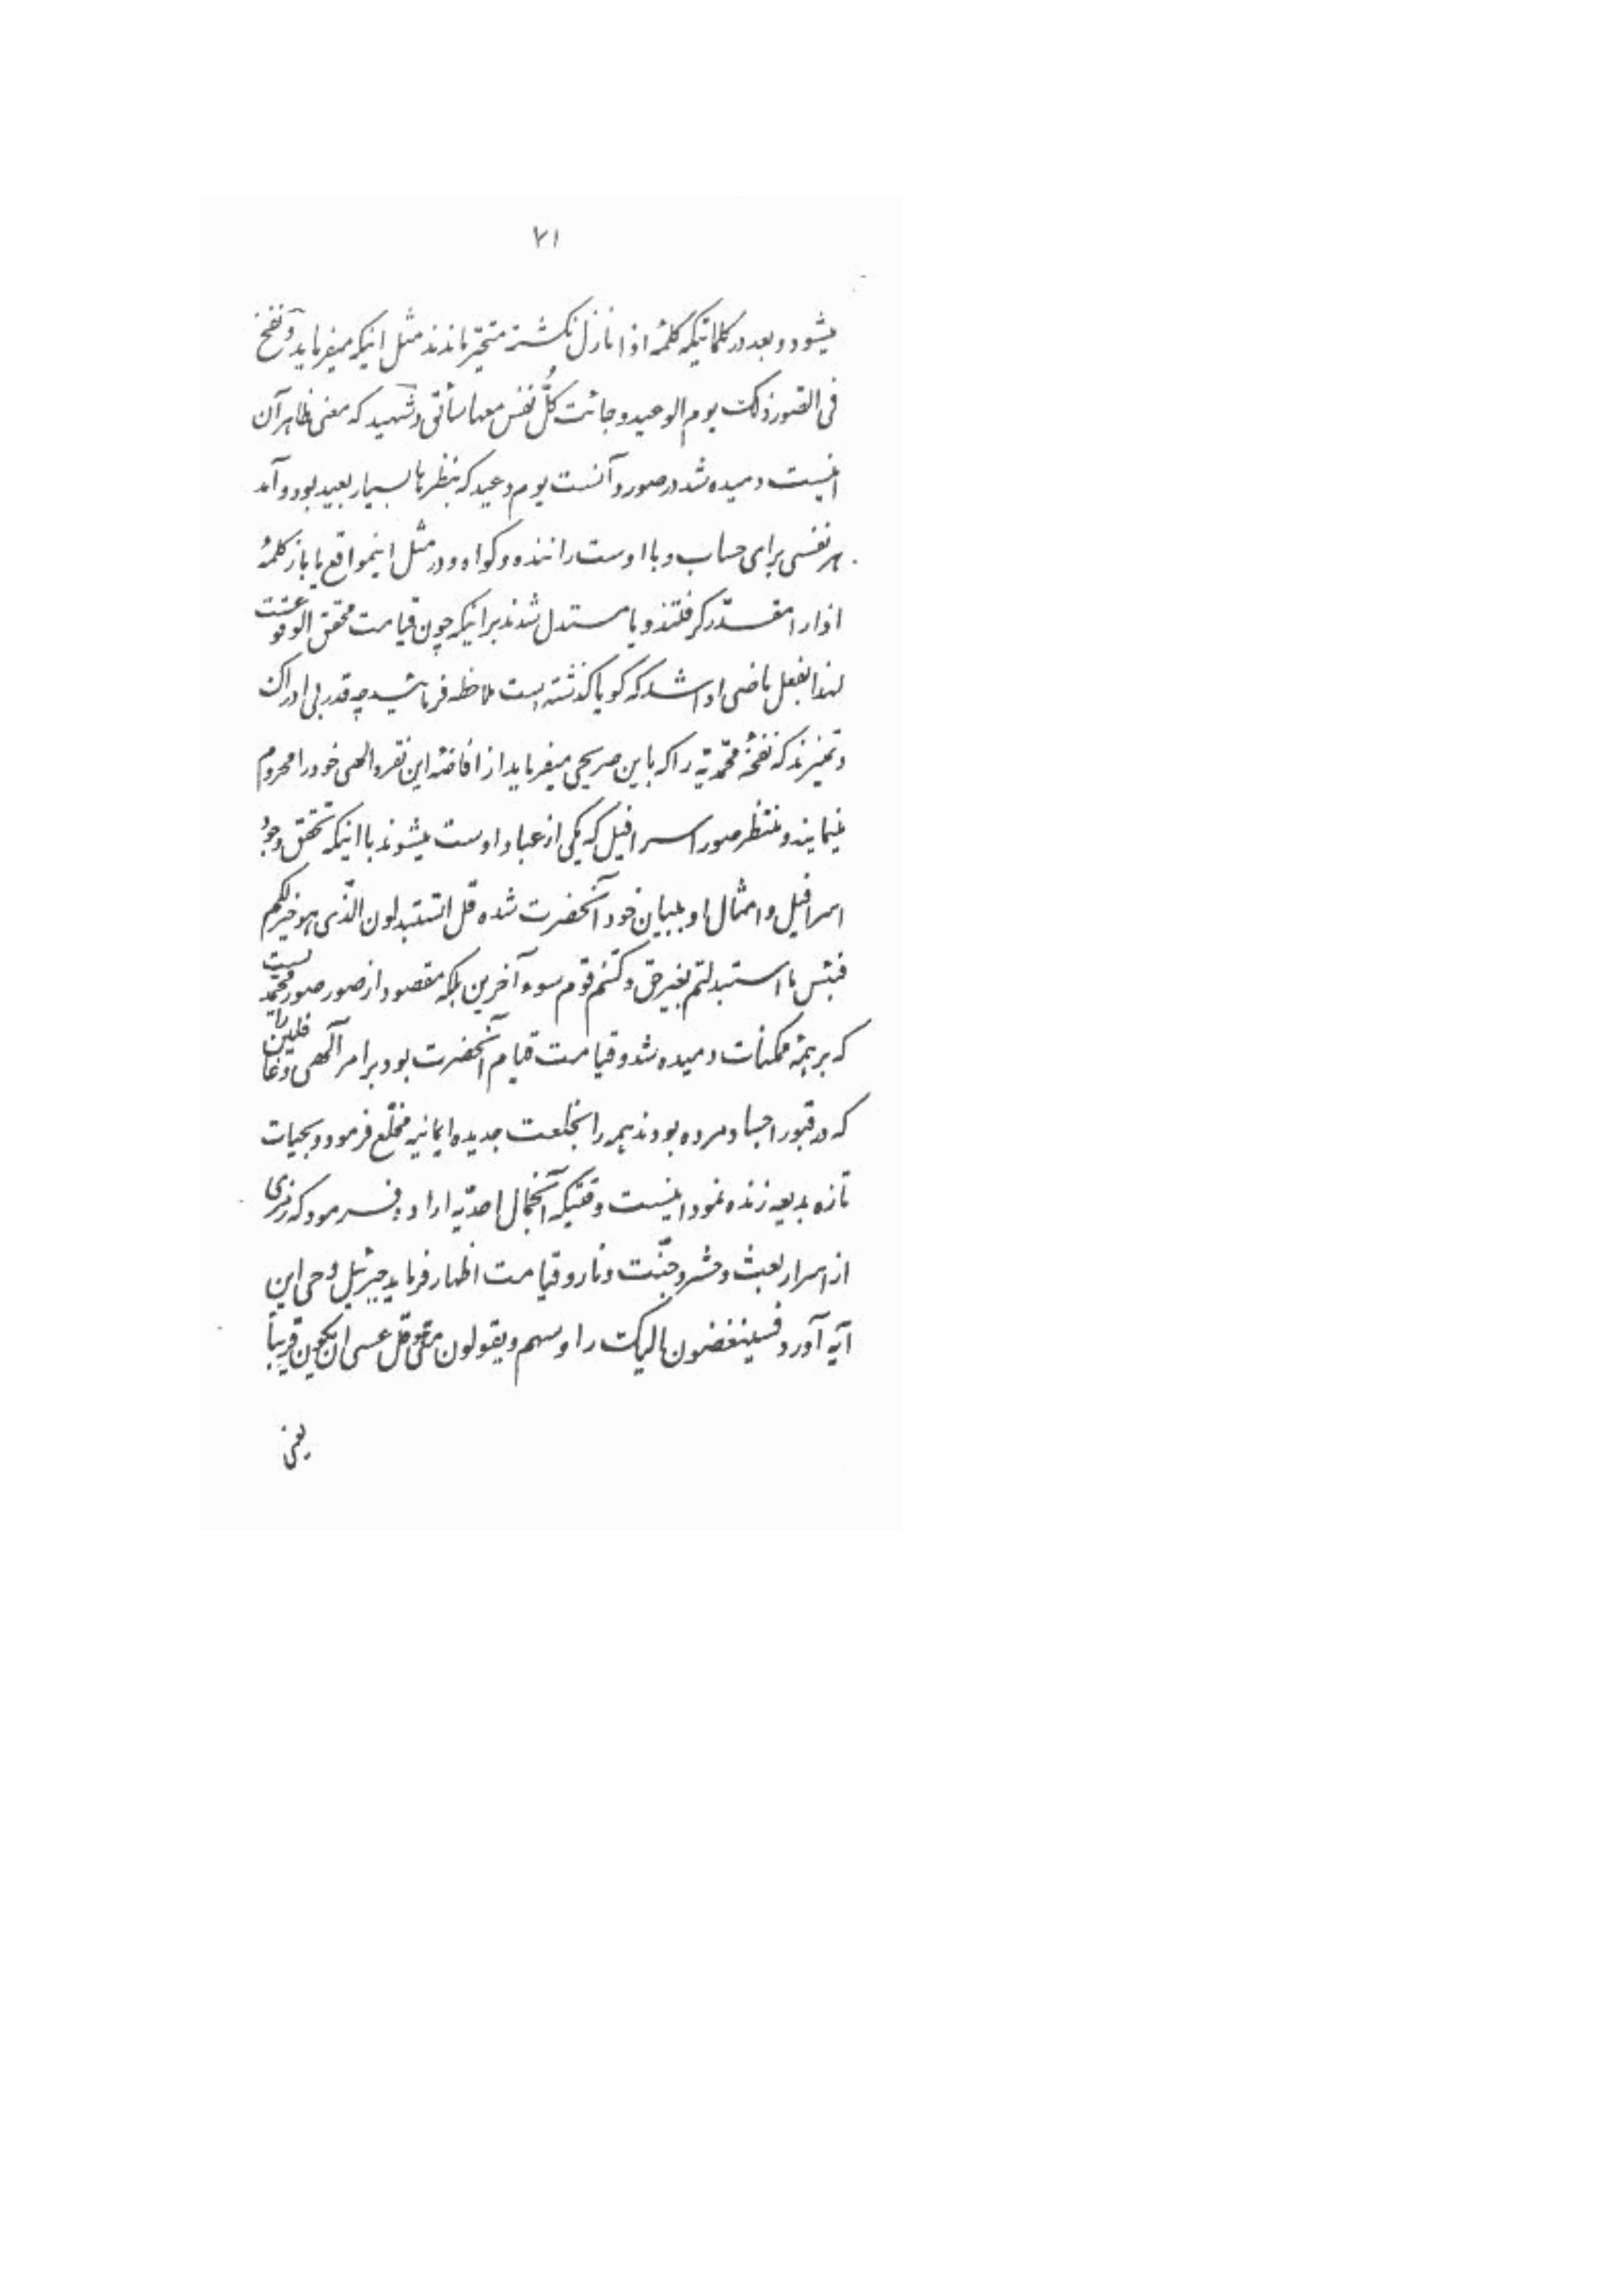 ۷۱
میشود و بعد در کلماتیکه کلمهٔ اذا نازل نگشته متحیّر ماندند مثل اینکه میفرماید و نفخ
فی الصّور ذلک یوم الوعید و جائت کلّ نفس معها سائق و شهید که معنی ظاهر آن
اینست دمیده شد در صور و آنست یوم وعید که بنظرها بسیار بعید بود و آمد
هر نفسی برای حساب و با اوست راننده و گواه و در مثل اینمواقع یا باز کلمهٔ
اذا را مقدّر گرفتند و یا مستدل شدند بر اینکه چون قیامت محقق الوقوعست
لهذا بفعل ماضی ادا شد که گویا گذشته است ملاحظه فرمائید چه قدر بی ادراک
و تمیزند که نفخهٔ محمّدیّه را که باین صریحی میفرماید از افاضهٔ این نقرهٔ الهی خود را محروم
مینمایند و منتظر صور اسرافیل که یکی از عباد اوست میشوند با اینکه تحقق وجود
اسرافیل و امثال او ببیان خود آنحضرت شده قل اتستبدلون الّذی هو خیر لکم
فبئس ما استبدلتم بغیر حق و کنتم قوم سوء آخرین بلکه مقصود از صور صور محمّدیست
که بر همهٔ ممکنات دمیده شد و قیامت قیام آنحضرت بود بر امر الهی و غافلین را
که در قبور اجساد مرده بودند همه را بخلعت جدیدهٔ ایمانیه مخلّع فرمود و بحیات
تازه بدیعه زنده نمود اینست وقتیکه آنجمال احدیّه اراده فرمود که رمزی
از اسرار بعث و حشر و جنّت و نار و قیامت اظهار فرماید جبرئیل وحی این
آیه آورد فسینغضون الیک رأوسهم و یقولون متی هو قل عسی ان یکون قریباً
یعنی